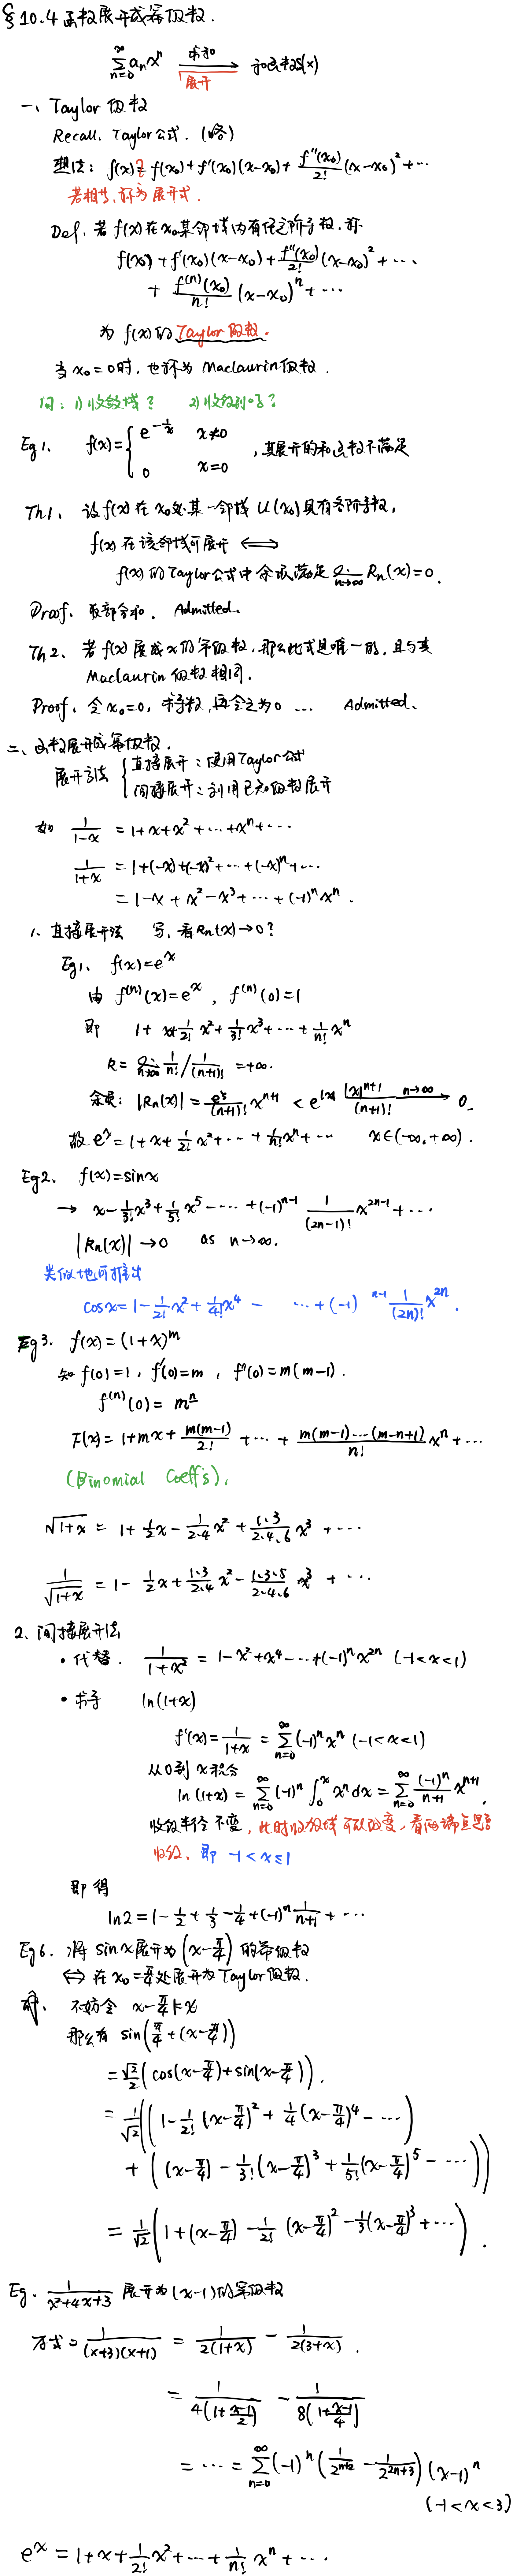 §10.4 函数展开成幂级数.
∑_{n=0}^{∞} a_n x^n 求和 ⟶ 展开 和函数S(x)
一、Taylor 级数
Recall. Taylor公式. (略)
想法: f(x) ≟ f(x₀)+f'(x₀)(x-x₀)+ f''(x₀)/2! (x-x₀)²+⋯
若相等, 称为展开式.
Def. 若 f(x) 在 x₀ 某邻域内有任意阶导数, 称
f(x₀)+f'(x₀)(x-x₀)+ f''(x₀)/2! (x-x₀)²+⋯
+ f⁽ⁿ⁾(x₀)/n! (x-x₀)ⁿ+⋯
为 f(x) 的 Taylor 级数.
当 x₀=0时, 也称为 Maclaurin 级数.
问: 1) 收敛域? 2) 收敛到吗?
Eg1. f(x)= { e^{-1/x} x≠0
0 x=0 , 其展开的和函数不满足
Th1. 设 f(x) 在 x₀ 处某一邻域 U(x₀) 具有各阶导数,
f(x) 在该邻域可展开 ⟺
f(x) 的 Taylor公式中余项满足 lim_{n→∞} R_n(x)=0.
Proof. 取部分和. Admitted.
Th2. 若 f(x) 展成 x 的幂级数, 那么此式是唯一的, 且与其
Maclaurin 级数相同.
Proof. 令 x₀=0, 求导数, 再令之为0 … Admitted.
二、函数展开成幂级数.
展开方法 { 直接展开: 使用Taylor公式
间接展开: 利用已知级数展开
如 1/(1-x) = 1+x+x²+⋯+xⁿ+⋯
1/(1+x) = 1+(-x)+(-x)²+⋯+(-x)ⁿ+⋯
= 1-x+x²-x³+⋯+(-1)ⁿxⁿ.
1. 直接展开法 写, 看R_n(x)→0?
Eg1. f(x)=e^x
由 f⁽ⁿ⁾(x)=e^x, f⁽ⁿ⁾(0)=1
即 1+x+1/2! x²+1/3! x³+⋯+1/n! xⁿ
R= lim_{n→∞} 1/n! / 1/(n+1)! =+∞.
余项: |R_n(x)|= e^ξ/(n+1)! x^{n+1} < e^{|x|} |x|^{n+1}/(n+1)! n→∞ ⟶ 0.
故 e^x=1+x+1/2! x²+⋯+1/n! xⁿ+⋯ x∈(-∞,+∞).
Eg2. f(x)=sinx
→ x-1/3! x³+1/5! x⁵-⋯+(-1)^{n-1} 1/(2n-1)! x^{2n-1}+⋯
|R_n(x)|→0 as n→∞.
类似地可推出
cosx=1-1/2! x²+1/4! x⁴-⋯+(-1)^{n-1} 1/(2n)! x^{2n}.
Eg3. f(x)=(1+x)^m
知 f(0)=1, f'(0)=m, f''(0)=m(m-1).
f⁽ⁿ⁾(0)= m^{n̲}
F(x)=1+mx+ m(m-1)/2! +⋯+ m(m-1)⋯(m-n+1)/n! xⁿ+⋯
(Binomial Coeff's).
√(1+x) = 1+1/2 x-1/(2·4) x²+ (1·3)/(2·4·6) x³+⋯
1/√(1+x) = 1-1/2 x+(1·3)/(2·4) x²-(1·3·5)/(2·4·6) x³+⋯
2. 间接展开法
• 代替. 1/(1+x²) = 1-x²+x⁴-⋯+(-1)ⁿx^{2n} (-1<x<1)
• 求导 ln(1+x)
f'(x)=1/(1+x) = ∑_{n=0}^{∞}(-1)ⁿxⁿ (-1<x<1)
从0到x积分
ln(1+x)=∑_{n=0}^{∞}(-1)ⁿ∫₀^x xⁿdx=∑_{n=0}^{∞} (-1)ⁿ/(n+1) x^{n+1}.
收敛半径不变, 此时收敛域可以改变, 看两端点是否
收敛. 即 -1<x≤1
即得
ln2=1-1/2+1/3-1/4+(-1)ⁿ 1/(n+1)+⋯
Eg6. 将 sinx展开为 (x-π/4) 的幂级数
⟺ 在 x₀=π/4处展开为Taylor级数.
解. 不妨令 x-π/4 ↦ x
那么有 sin(π/4+(x-π/4))
=√2/2 (cos(x-π/4)+sin(x-π/4)).
=1/√2 ((1-1/2!(x-π/4)²+1/4(x-π/4)⁴-⋯)
+((x-π/4)-1/3!(x-π/4)³+1/5!(x-π/4)⁵-⋯))
=1/√2 (1+(x-π/4)-1/2!(x-π/4)²-1/3(x-π/4)³+⋯).
Eg. 1/(x²+4x+3) 展开为(x-1)的幂级数
原式=1/((x+3)(x+1)) = 1/(2(1+x)) - 1/(2(3+x)).
= 1/(4(1+(x-1)/2)) - 1/(8(1+(x-1)/4))
=⋯=∑_{n=0}^{∞}(-1)ⁿ(1/2^{n+2}-1/2^{2n+3})(x-1)ⁿ
(-1<x<3)
e^x=1+x+1/2! x²+⋯+1/n! xⁿ+⋯